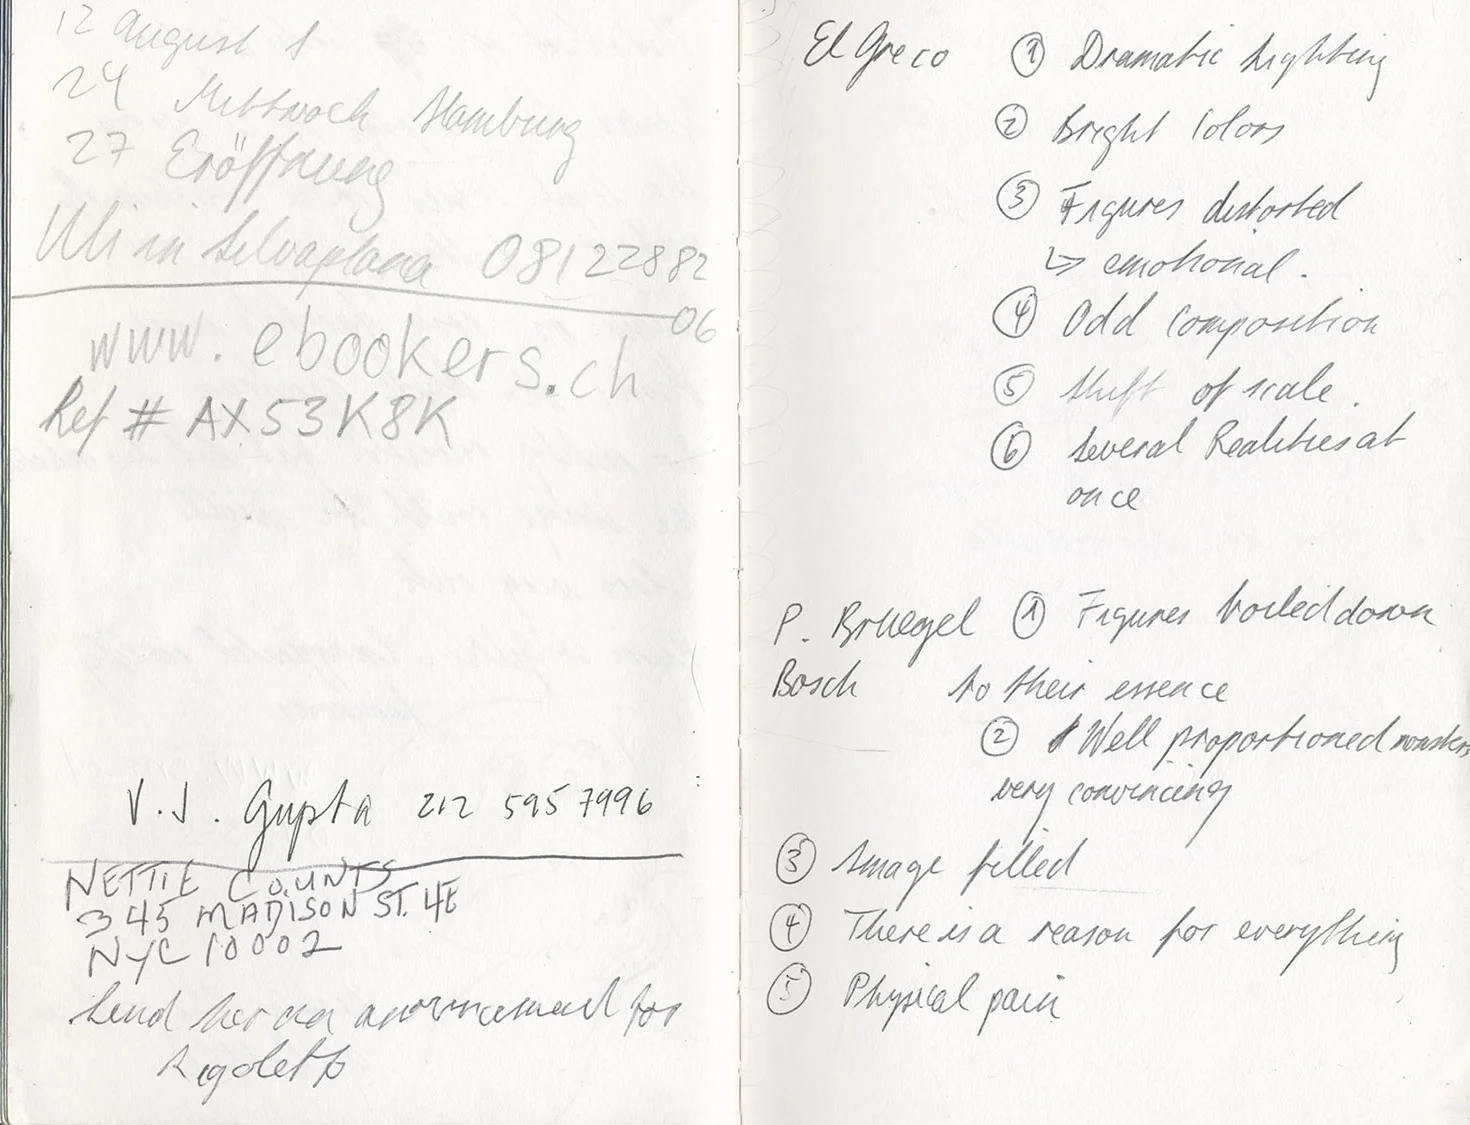 12 August
24 Mittwoch Hamburg
27 Eröffnung
Uli in Silvaplana 08122882
06
www.ebookers.ch
Ref # AX53K8K
V.J. Gupta 212 595 7996
NETTIE COUNTS
345 MADISON ST. 4E
NYC 10002
Send her an announcement for
Rigoletto
El Greco ① Dramatic Lighting
② Bright Colors
③ Figures distorted
↳ emotional.
④ Odd Composition
⑤ Shift of scale.
⑥ Several Realities at
once
P. Bruegel ① Figures boiled down
Bosch to their essence
② Well proportioned monsters
very convincing
③ Image filled
④ There is a reason for everything
⑤ Physical pain